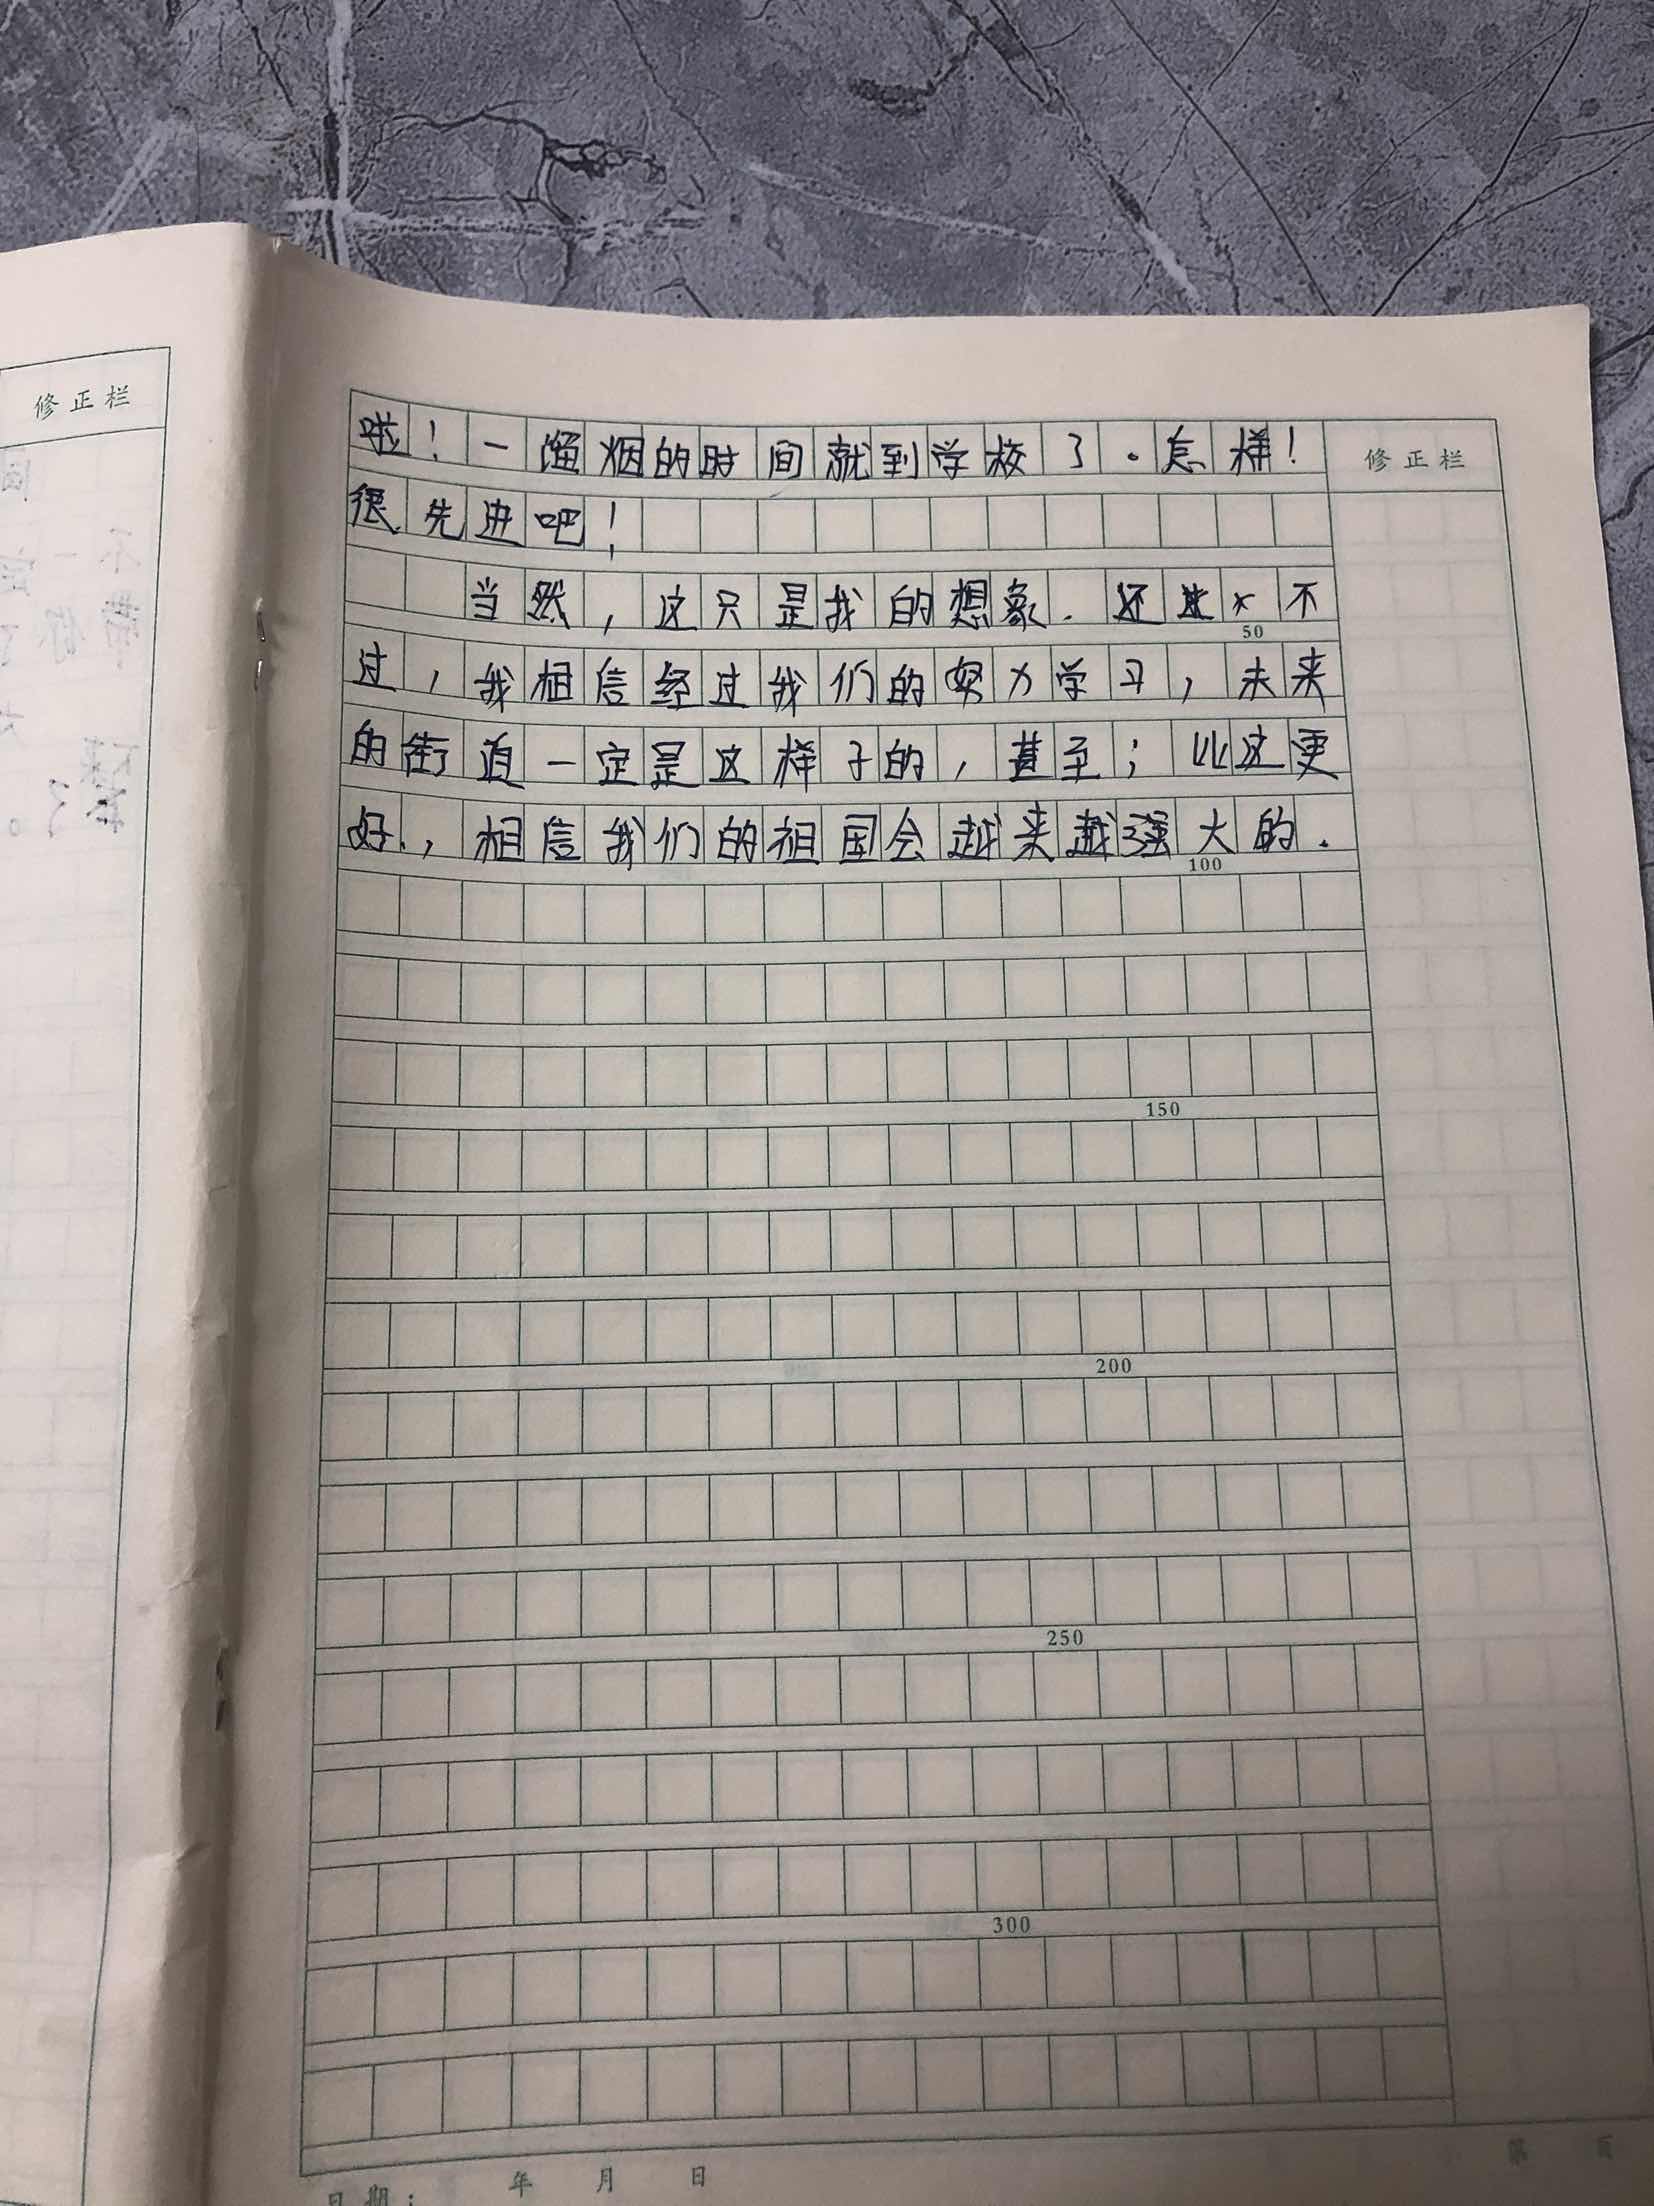 修正栏
啦！一溜烟的时间就到学校了。怎样！
修正栏
很先进吧！
当然，这只是我的想象.还 不
50
过，我相信经过我们的努力学习，未来
的街道一定是这样子的，甚至；比这更
好.，相信我们的祖国会越来越强大的.
100
150
200
250
300
日期： 年 月 日
第 页